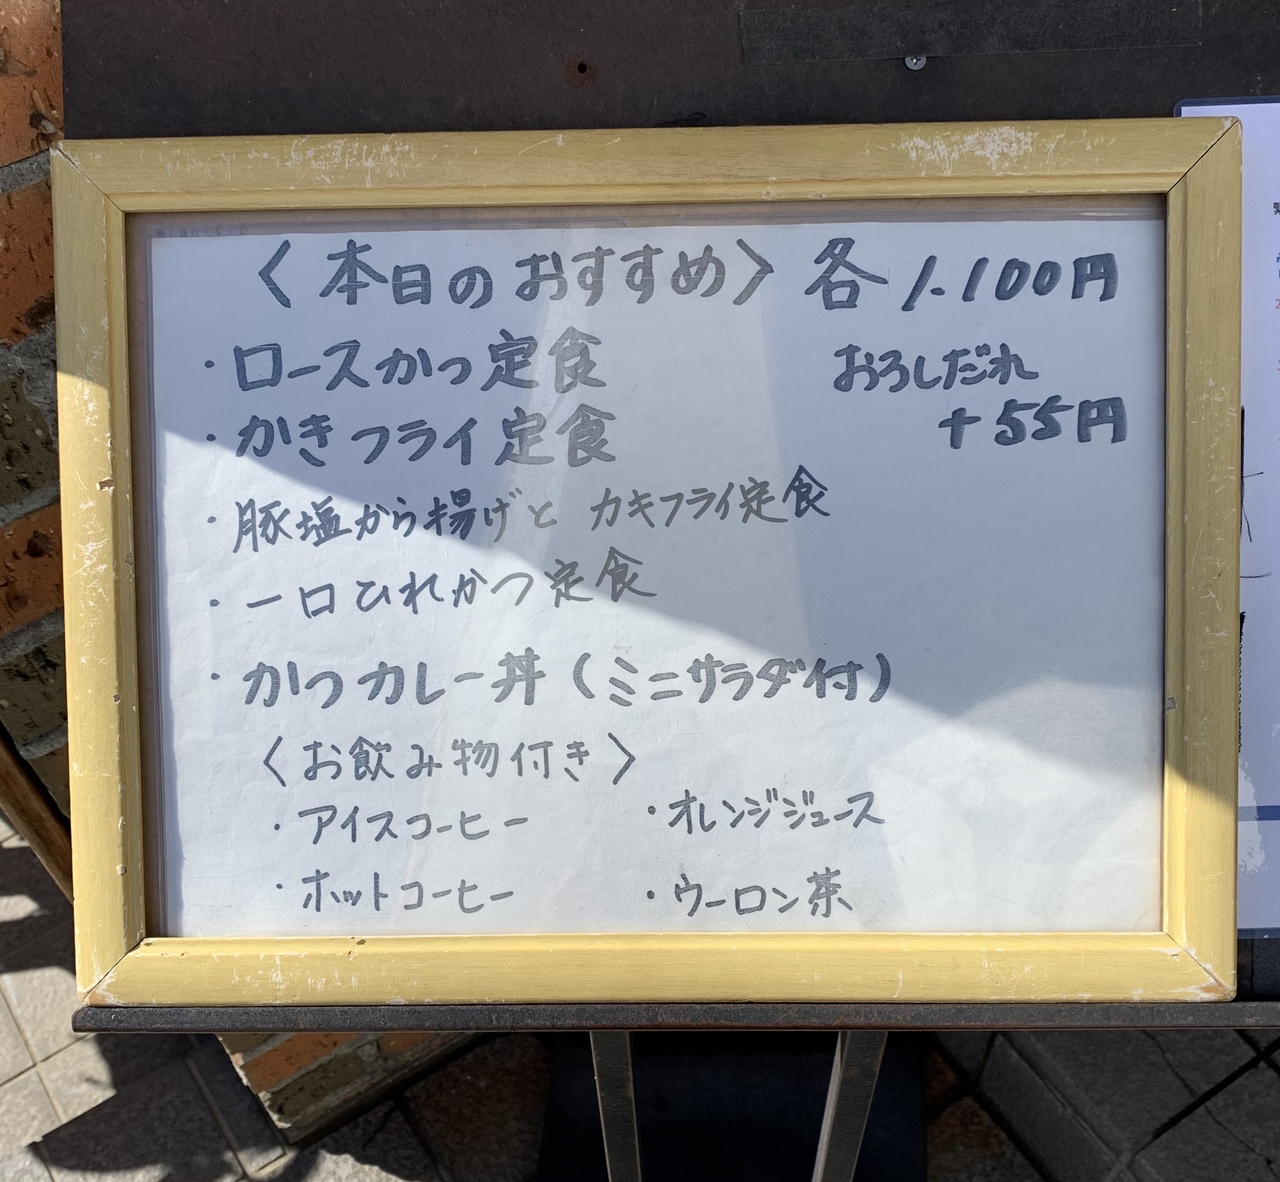 〈本日のおすすめ〉各1.100円
・ロースかつ定食
おろしだれ
+55円
・かきフライ定食
・豚塩から揚げと カキフライ定食
・一口ひれかつ定食
・かつカレー丼(ミニサラダ付)
〈お飲み物付き〉
・アイスコーヒー
・オレンジジュース
・ホットコーヒー
・ウーロン茶